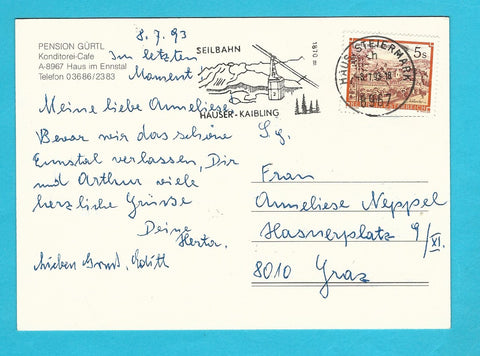 8.7.93
PENSION GÜRTL
Konditorei-Cafe
A-8967 Haus im Ennstal
Telefon 03686/2383
Im letzten
Moment
Meine liebe Anneliese
Bevor wir das schöne
Ennstal verlassen, Dir
und Arthur viele
herzliche Grüsse
Deine
Herta.
lieben Gruß, Edith
SEILBAHN
HAUSER-KAIBLING
1870 m
HAUS, STEIERMARK
8967
5s
S.g.
Frau
Anneliese Neppel
Hasnerplatz 9/XI.
8010 Graz